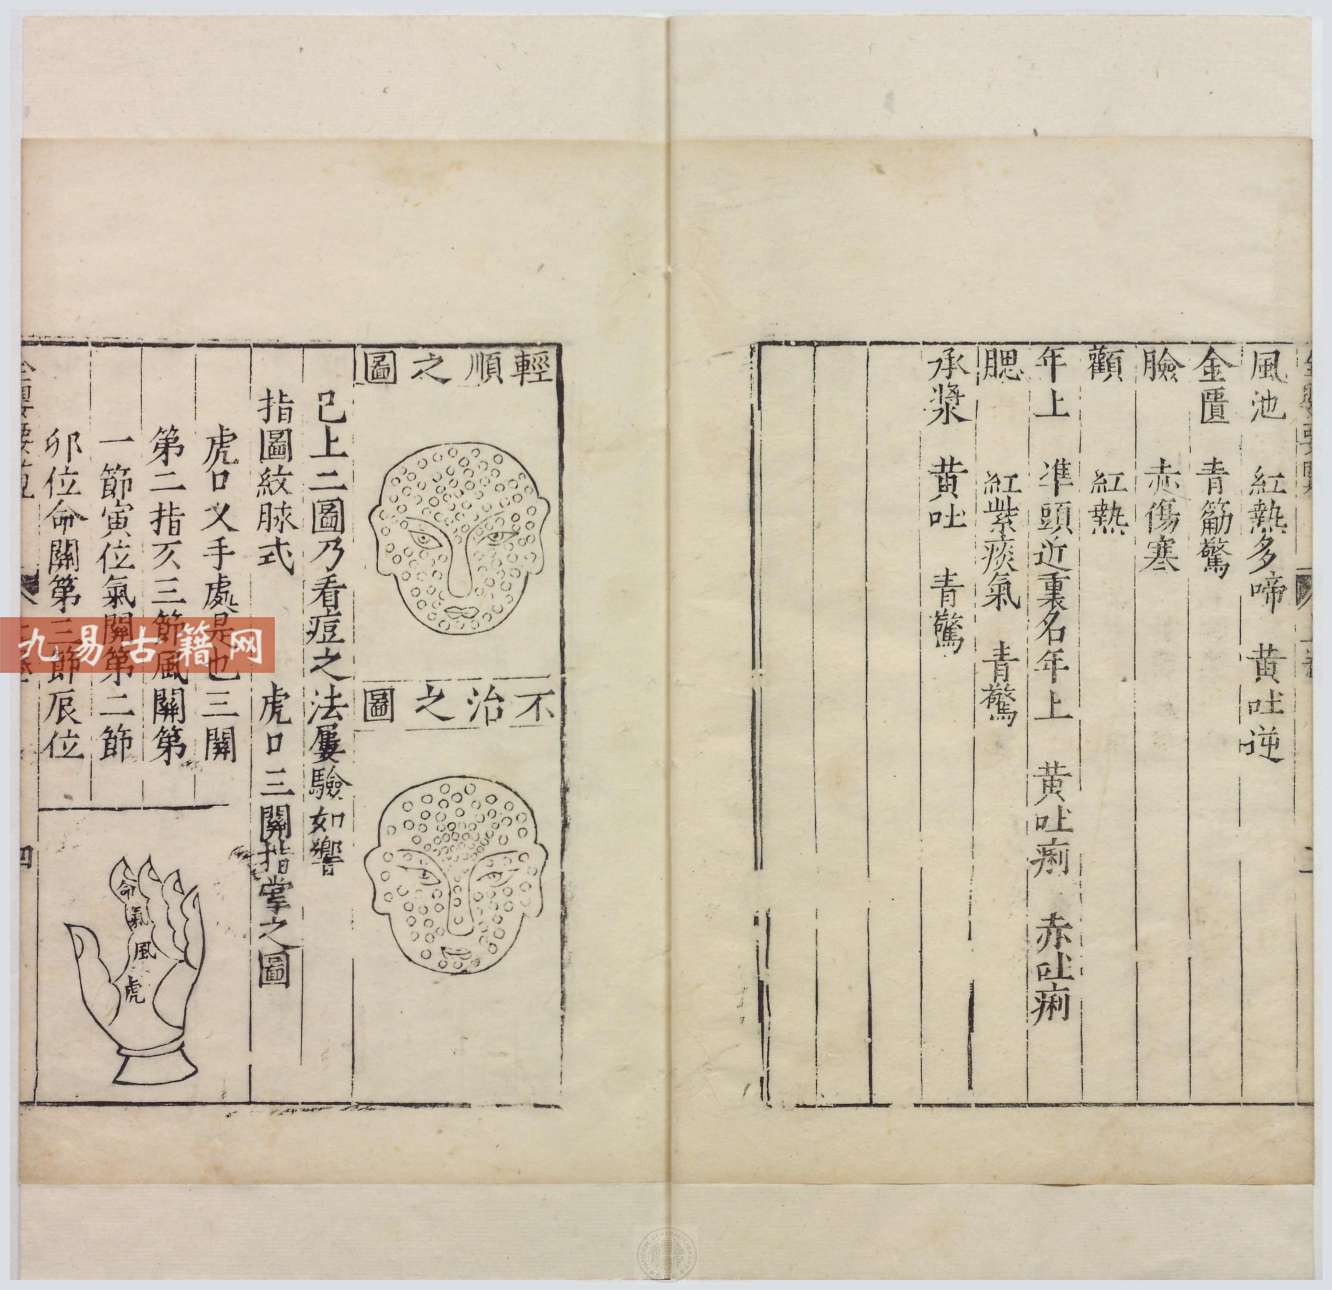 風池　紅熱多啼　黃吐逆
金匱　青筯驚
臉　赤傷寒
顴　紅熱
年上　準頭近裏名年上　黃吐痢　赤吐痢
腮　紅紫痰氣　青驚
承漿　黃吐　青驚
輕順之圖
不治之圖
已上二圖乃看痘之法屢驗如響
指圖紋脉式　虎口三關指掌之圖
虎口乂手處是也三關
第二指亥三節風關第
一節寅位氣關第二節
卯位命關第三節辰位
命
氣
風
虎
四
九易古籍网